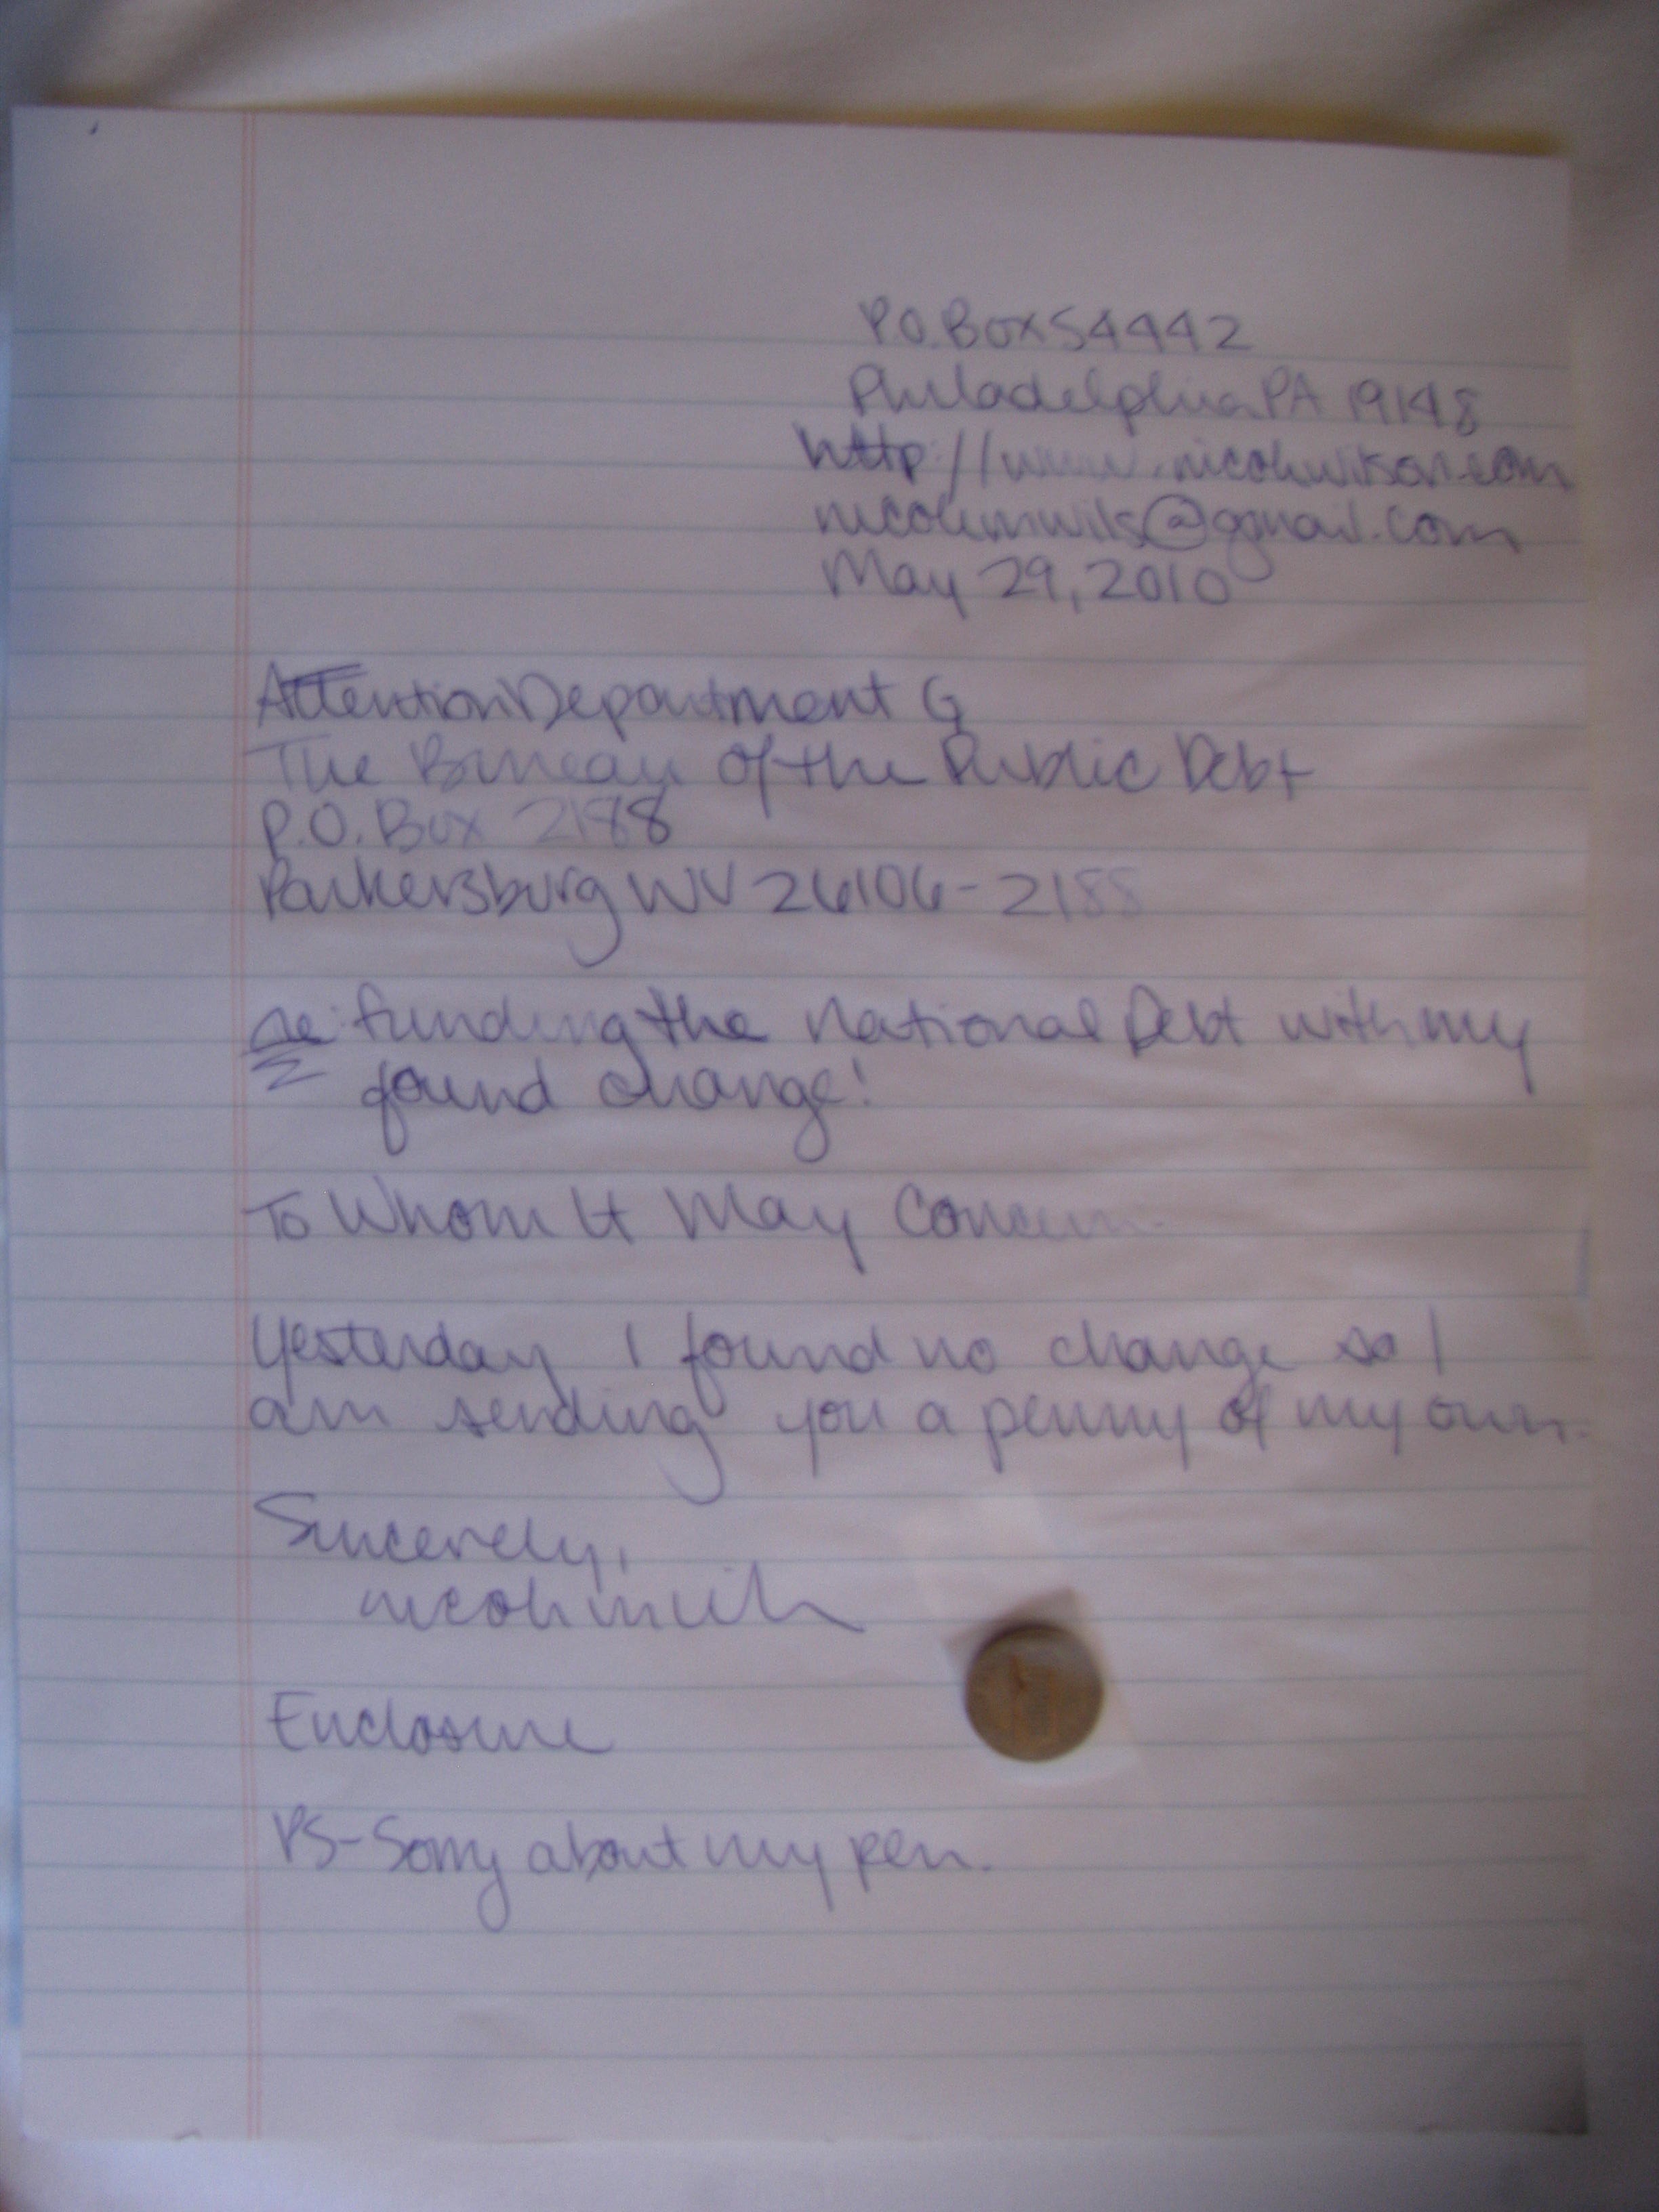 P.O. Box 54442
Philadelphia PA 19148
http://www.nicoliwilson.com
May 29, 2010
Attention Department G
The Bureau of the Public Debt
P.O. Box 2188
Parkersburg WV 26106-2188
re: funding the National Debt with my
found change!
To Whom It May Concern:
Yesterday I found no change so I
am sending you a penny of my own.
Sincerely,
Enclosure
PS-Sorry about my pen.